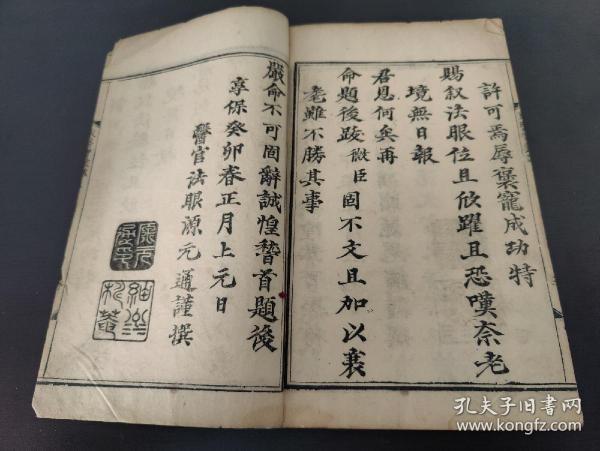 許可焉辱褒寵成功特
賜叙法眼位且欣躍且恐嘆奈老
境無日報
君恩何矣再
命題後跋微臣固不文且加以衰
耄雖不勝其事
嚴命不可固辭誠惶誓首題後
享保癸卯春正月上元日
醫官法眼源元通謹撰
孔夫子旧书网
www.kongfz.com